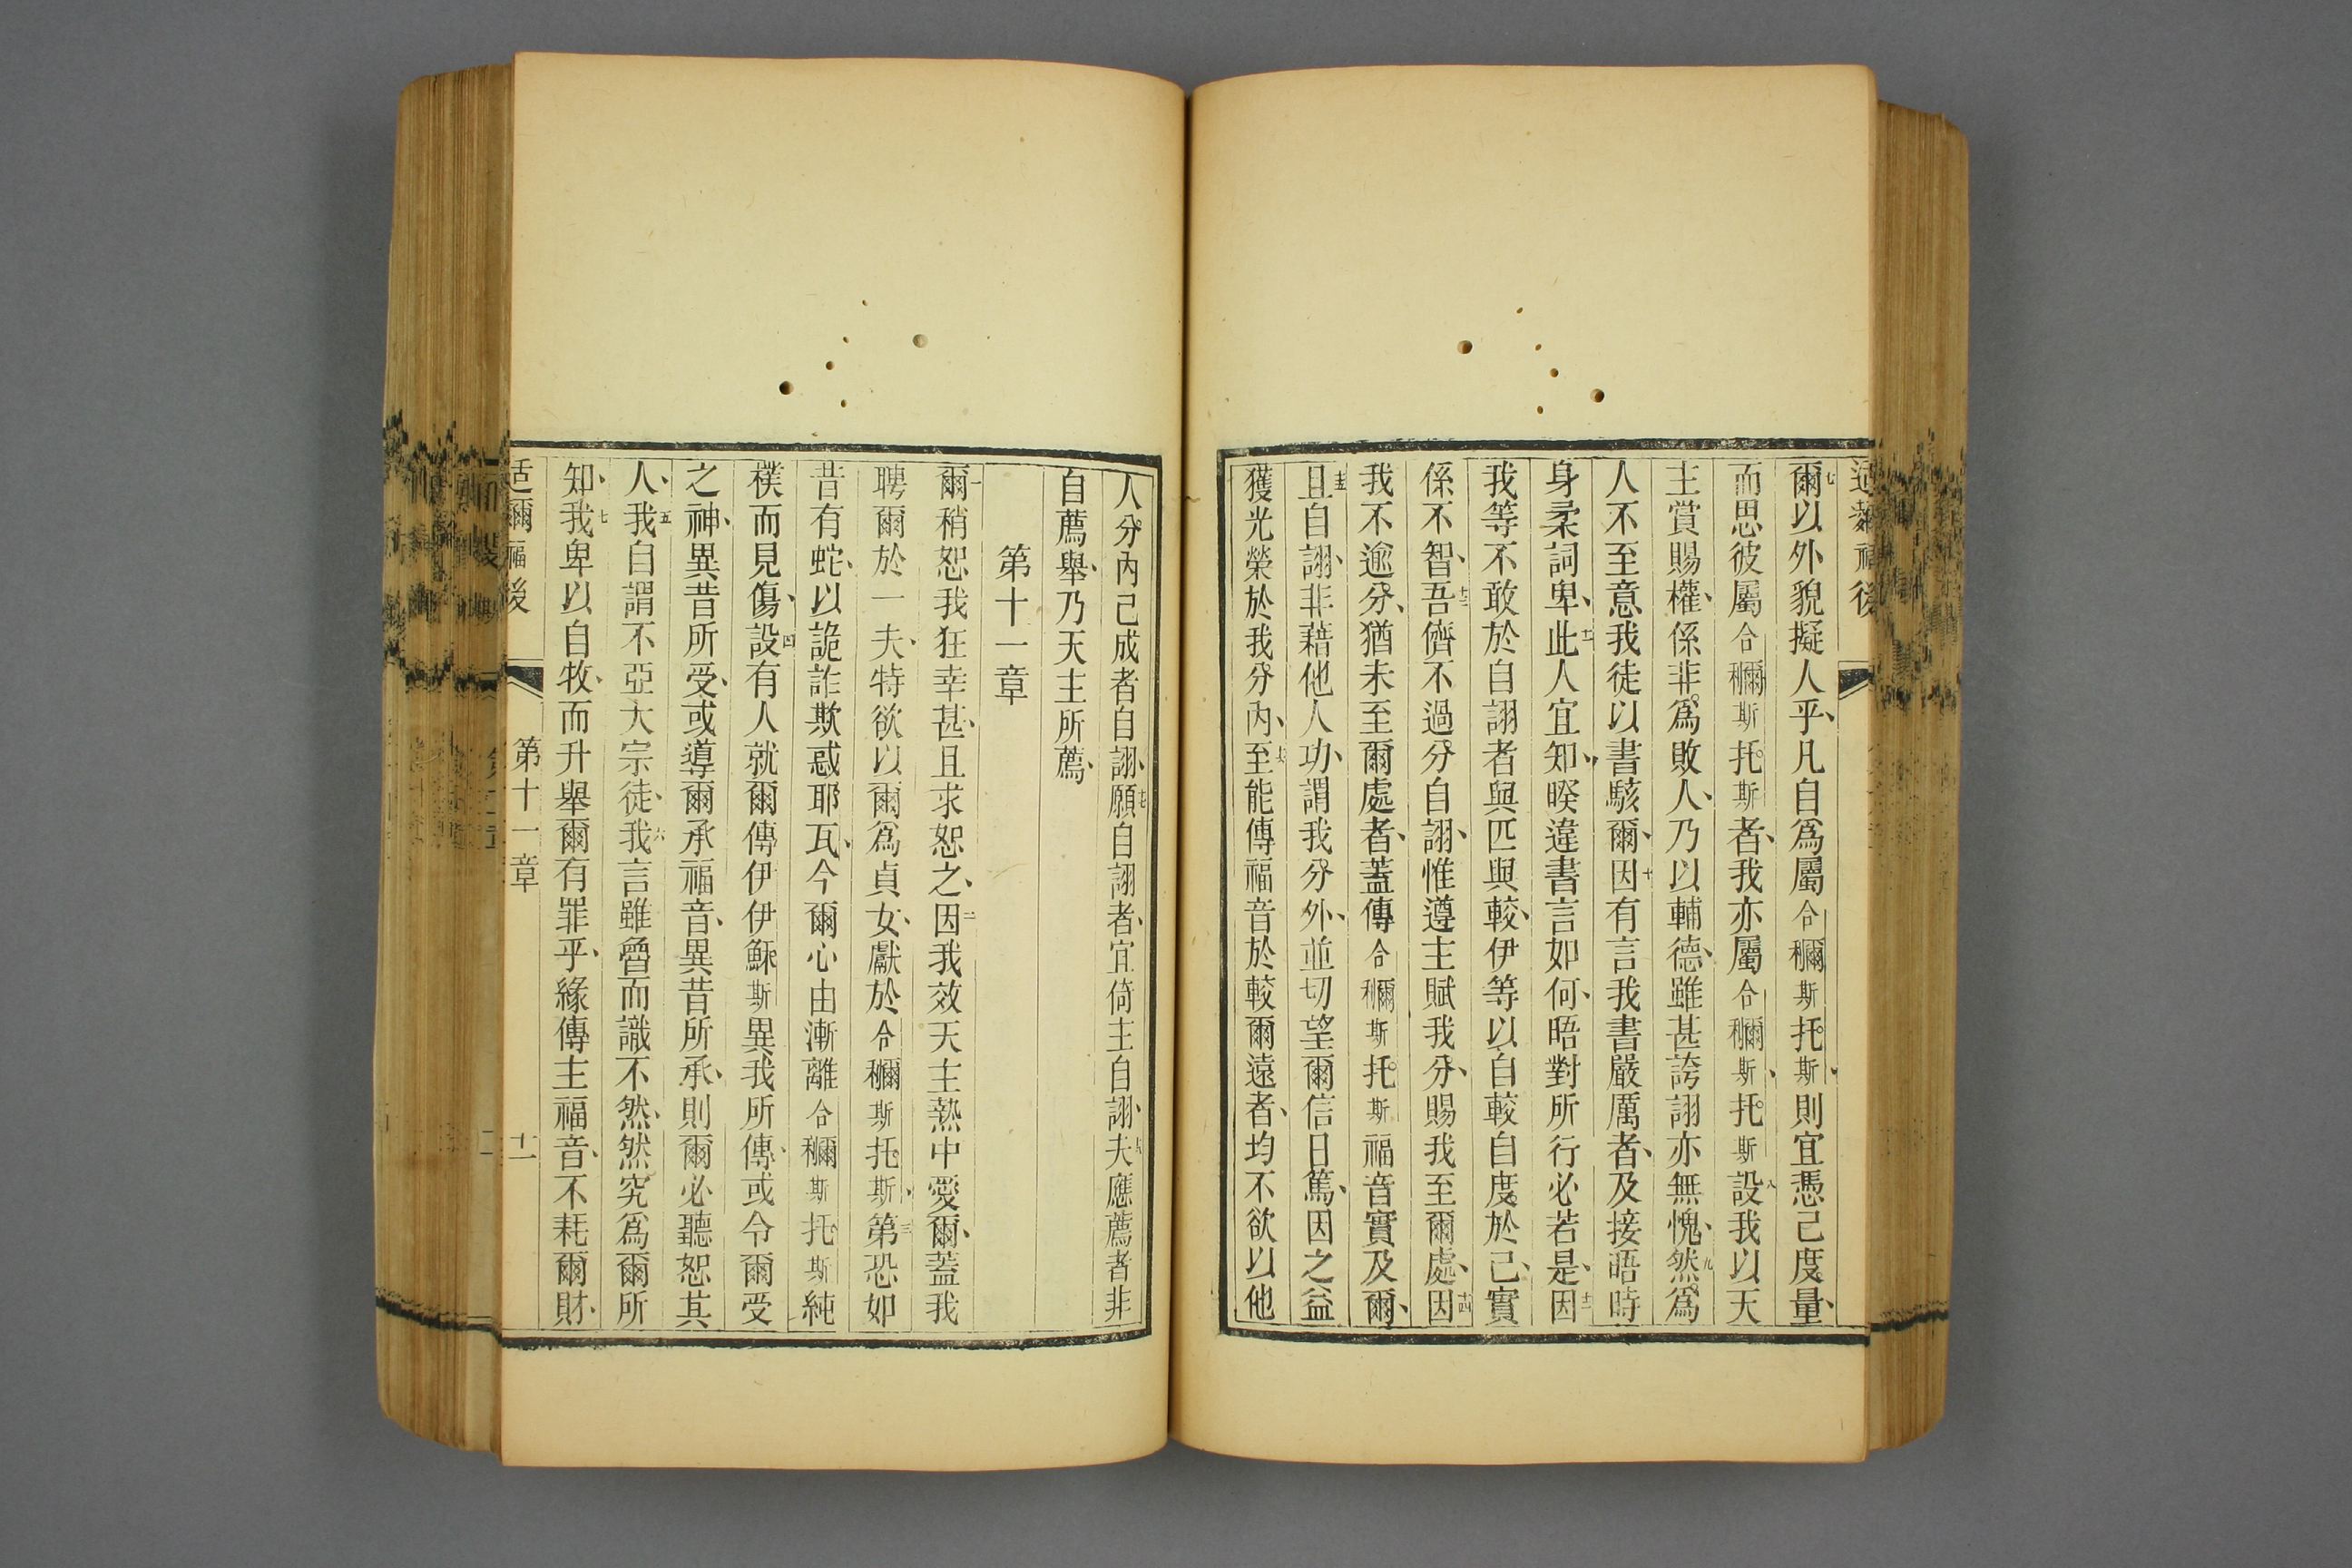 爾以外貌擬人乎、凡自爲屬合穪斯托斯、則宜憑己度量、
而思彼屬合穪斯托斯者、我亦屬合穪斯托斯、八設我以天
主賞賜權、係非爲敗人、乃以輔德、雖甚誇詡亦無愧、九然爲
人不至意我徒以書駭爾、十因有言我書嚴厲者、及接晤時
身柔詞卑、十一此人宜知、暌違書言如何、晤對所行必若是、十二因
我等不敢於自詡者與匹與較、伊等以自較自度於己、實
係不智、十三吾儕不過分自詡、惟遵主賦我分、賜我至爾處、十四因
我不逾分、猶未至爾處者、蓋傳合穪斯托斯福音實及爾、
十五且自詡、非藉他人功、謂我分外、並切望爾信日篤、因之益
獲光榮於我分內、十六至能傳福音於較爾遠者、均不欲以他
人分內己成者自詡、十七願自詡者、宜倚主自詡、十八夫應薦者非
自薦舉、乃天主所薦、
第十一章
一爾稍恕我狂幸甚、且求恕之、二因我效天主熱中愛爾、蓋我
聘爾於一夫、特欲以爾爲貞女、獻於合穪斯托斯、三第恐如
昔有蛇、以詭詐欺惑耶瓦、今爾心由漸離合穪斯托斯純
樸而見傷、四設有人就爾傳伊伊穌斯異我所傳、或令爾受
之神、異昔所受、或導爾承福音、異昔所承、則爾必聽恕其
人、五我自謂不亞大宗徒、六我言雖魯而識不然、然究爲爾所
知、七我卑以自牧、而升舉爾有罪乎、緣傳主福音、不耗爾財、
福後
第十一章
十一